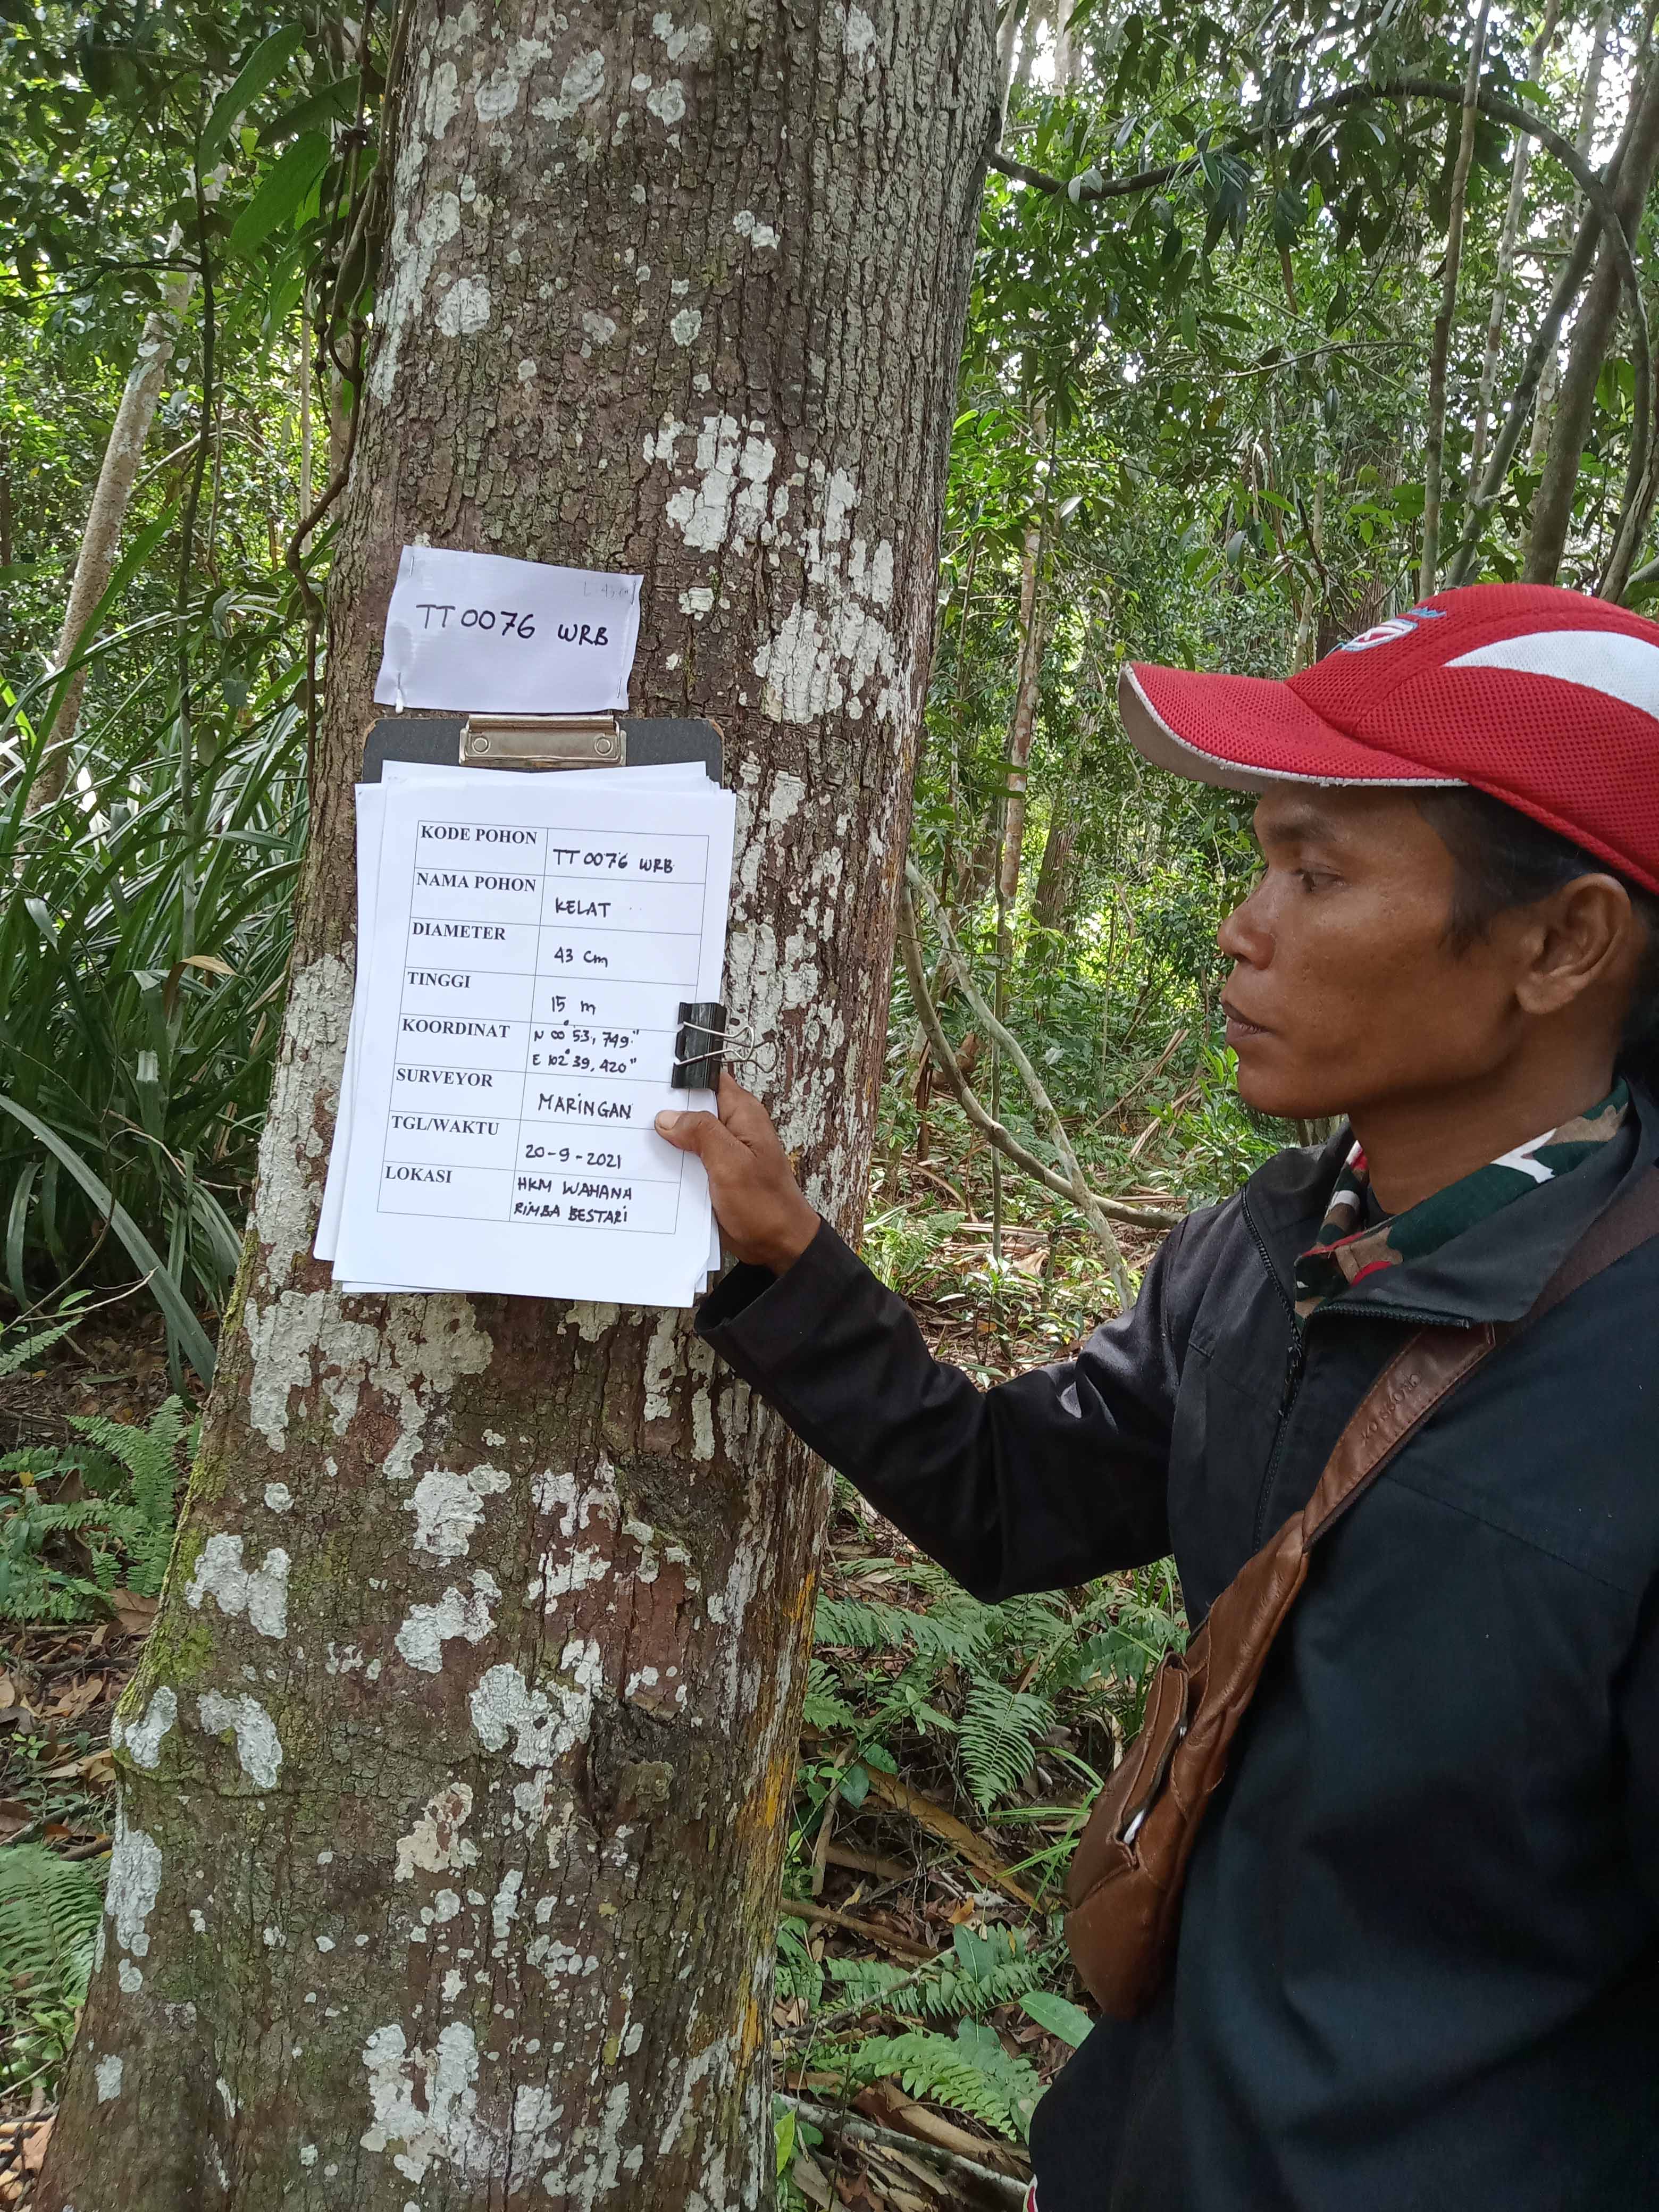 TT0076 WRB
KODE POHON TT0076 WRB
NAMA POHON KELAT
DIAMETER 43 Cm
TINGGI 15 m
KOORDINAT N 00° 53, 749"
E 102° 39, 420"
SURVEYOR MARINGAN
TGL/WAKTU 20-9-2021
LOKASI HKM WAHANA
RIMBA BESTARI